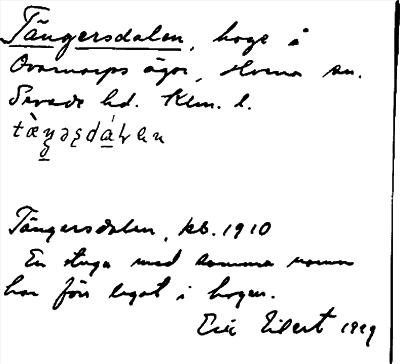 Tängersdalen, hage å
Ovarnarps ägor, Horna sn.
Sevede hd. Klm. l.
Tängersdalen, kb. 1910
En stuga med samma namn
har förr legat i hagen.
Eric Eilert 1929